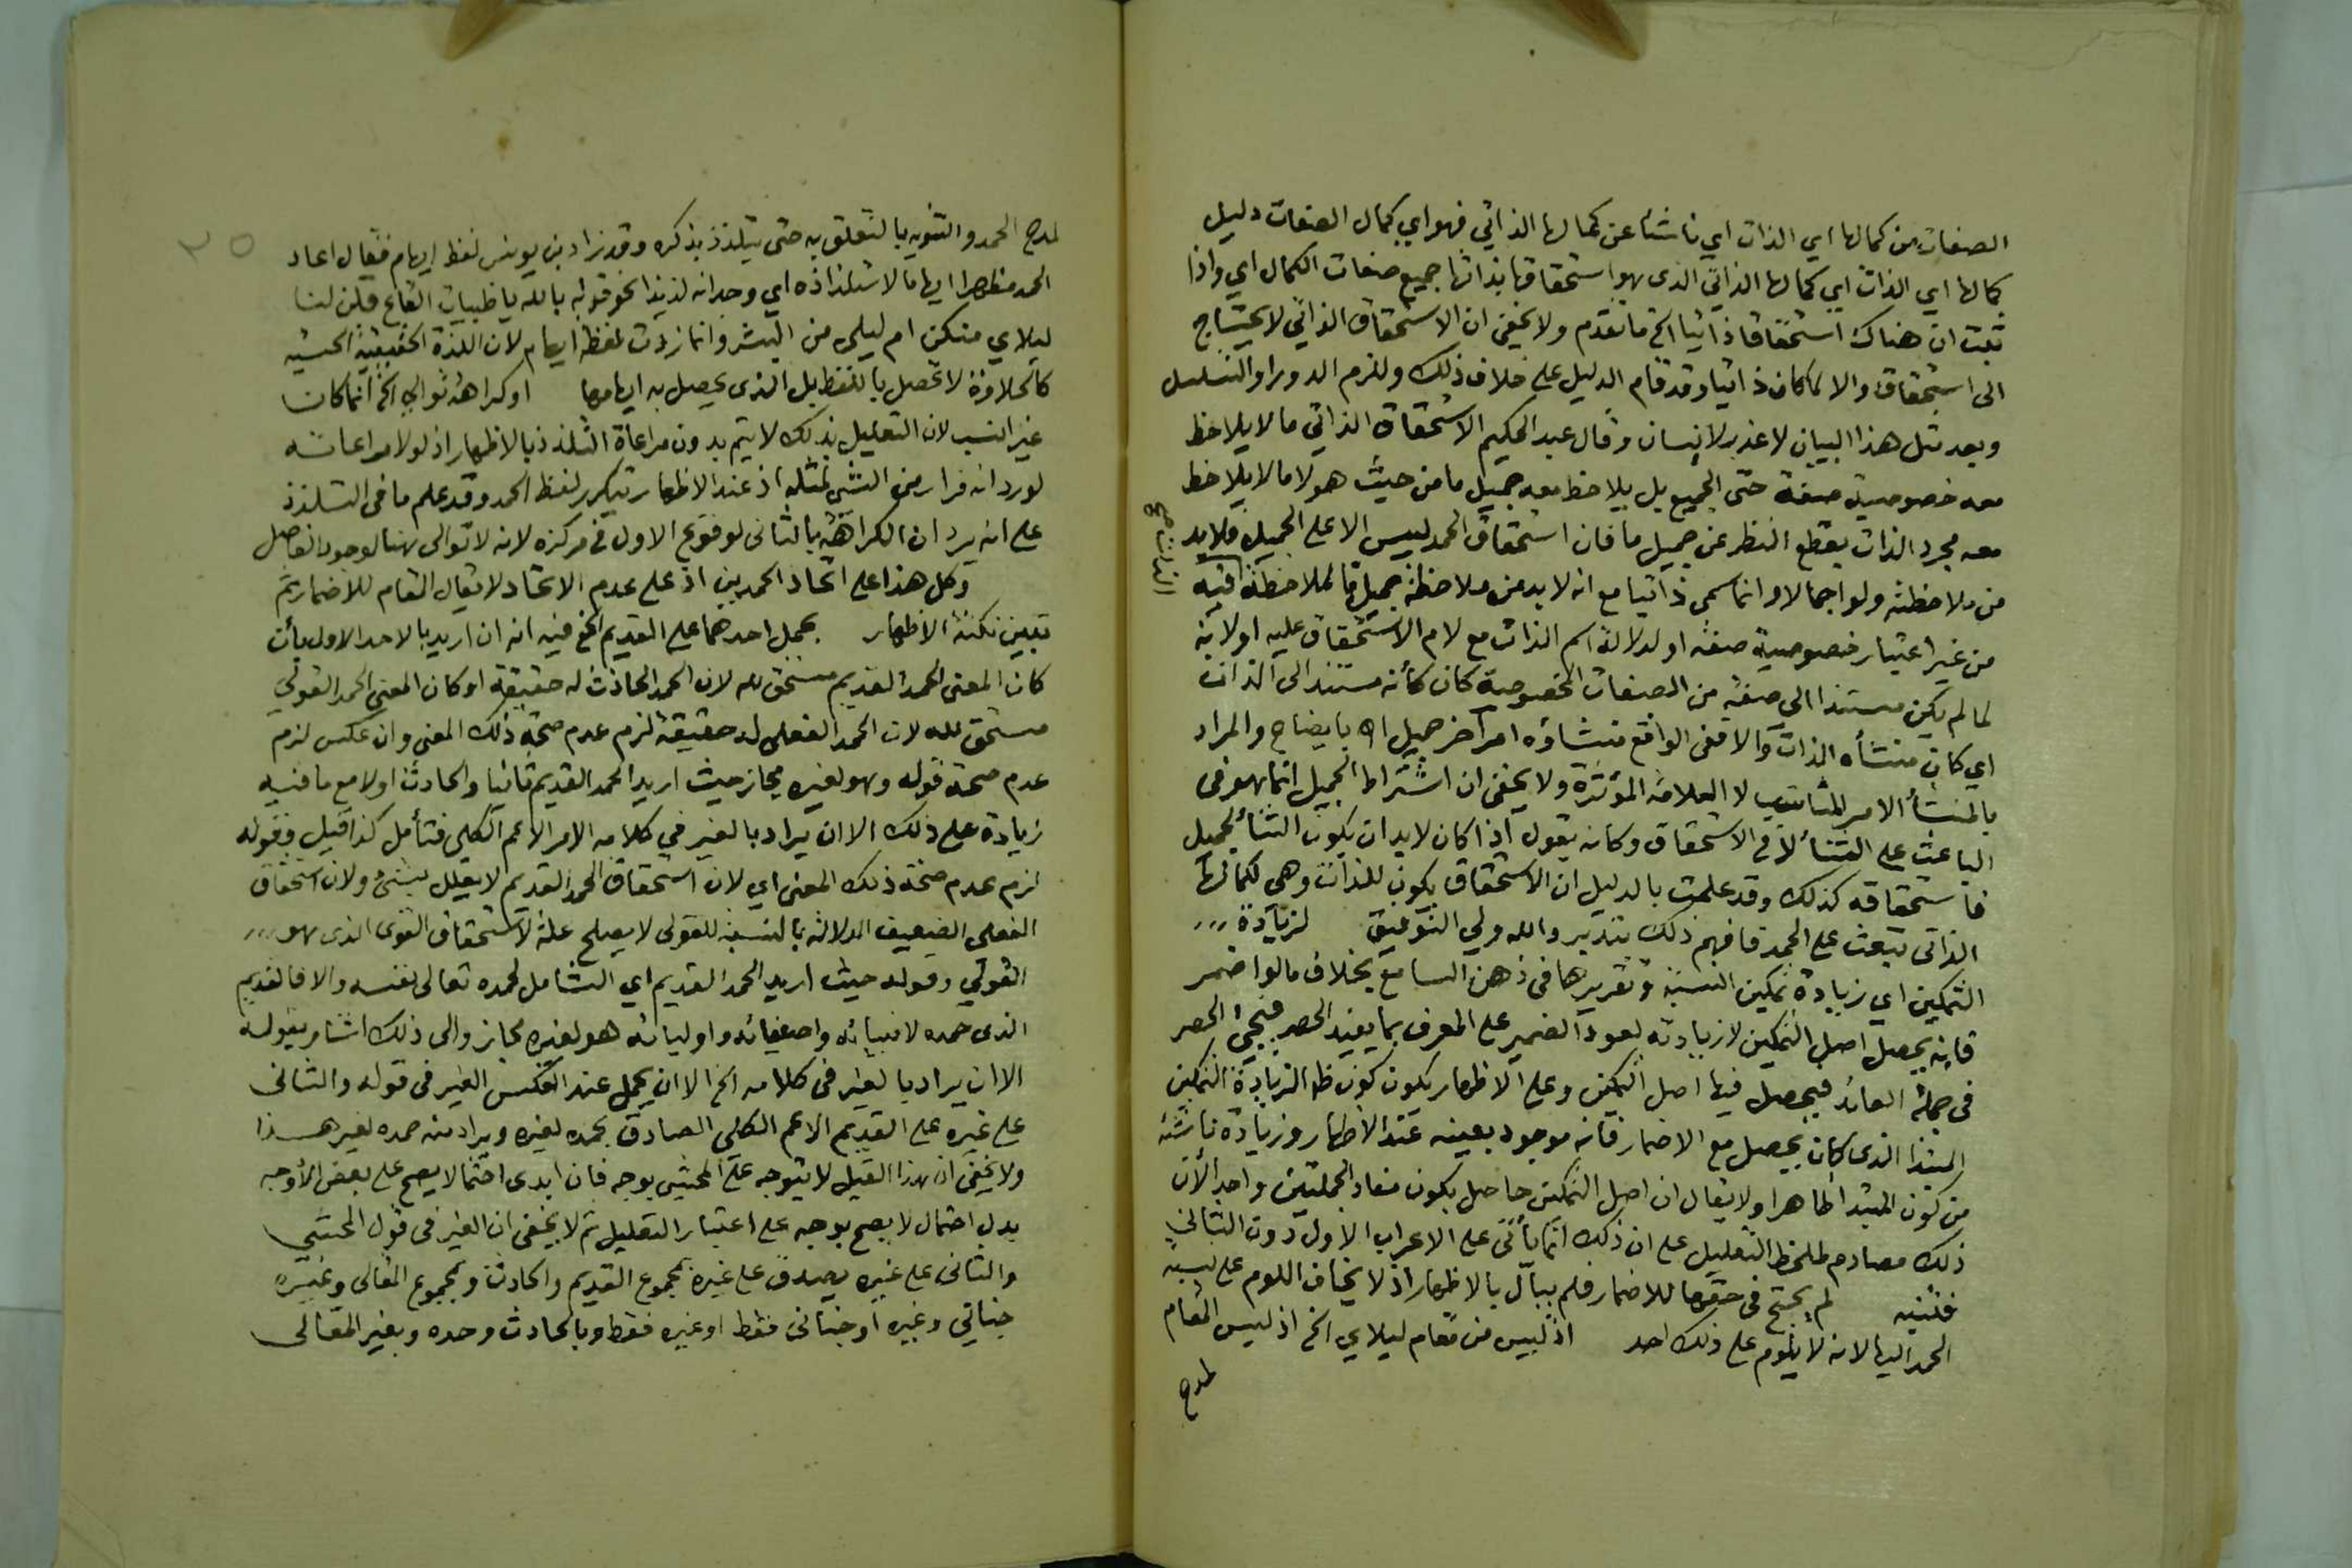 الصفات من كمالها اي الذات اي ناشئا عن كمالها الذاتي فهو اي كمال الصفات دليل
كمالها اي الذات اي كمالها الذاتي الذى هو استحقاقها بذاتها جميع صفات الكمال اي واذا
ثبت ان هناك استحقاقا ذاتيا الخ ما تقدم ولا يخفى ان الاستحقاق الذاتي لا يحتاج
الى استحقاق والا لما كان ذاتيا وقد قام الدليل على خلاف ذلك وللزم الدور او التسلسل
وبعد مثل هذا البيان لا عذر لانسان وقال عبد الحكيم الاستحقاق الذاتي ما لا يلاحظ
معه خصوصية صفة حتى الجميع بل يلاحظ معه جميل ما من حيث هو لا ما لا يلاحظ
معه مجرد الذات بقطع النظر عن جميل ما فان استحقاق الحمد ليس الا على الجميل فلا بد
من ملاحظته ولو اجمالا وانما سمى ذاتيا مع انه لا بد من ملاحظة جميل ما لملاحظة
من غير اعتبار خصوصية صفة او لدلالة اسم الذات مع لام الاستحقاق عليه او لانه
لما لم يكن مستندا الى صفة من الصفات المخصوصة كان كأنه مستند الى الذات
اي كان منشأه الذات والا ففى الواقع منشاؤه امر اخر جميل اه بايضاح والمراد
بالمنشأ الامر المناسب لا العلامة المؤثرة ولا يخفى ان اشتراط الجميل انما هو فى
الباعث على الثناء لا فى الاستحقاق وكانه يقول اذا كان لا بد ان يكون الثناء لجميل
فاستحقاقه كذلك وقد علمت بالدليل ان الاستحقاق يكون للذات وهى لكمالها
الذاتى تبعث على الحمد فافهم ذلك بتدبر والله ولي التوفيق لزيادة
التمكين اي زيادة تمكين النسبة وتقريرها فى ذهن السامع بخلاف ما لو اضمر
فانه يحصل اصل التمكين لا زيادته لعود الضمير على المعرف بما يفيد الحصر فيجئ الحصر
فى جملة العائد فيحصل فيها اصل التمكين وعلى الاظهار يكون كون ظه الزيادة التمكين
المبتدا الذى كان يحصل مع الاضمار فانه موجود بعينه عند الاظهار وزيادة ناشئة
من كون المبتدا ظاهرا ولا يقال ان اصل التمكين حاصل بكون مفاد الجملتين واحد الان
ذلك مصادم لملحظ التعليل على ان ذلك انما يأتى على الاعراب الاول دون الثانى
فتنبه لم يحتج فى حقها للاضمار فلم يبال بالاظهار اذ لا يخاف اللوم على نسبة
الحمد اليها لانه لا يلوم على ذلك احد اذ ليس من مقام ليلاي الخ اذ ليس المقام
لمدح
لمدح الحمد والتنويه بالتعلق به حتى يتلذذ بذكره وقد زاد بن يونس لفظ ايهام فقال اعاد
الحمد مظهرا ايهاما لاستلذاذه اي وجدانه لذيذا نحو قوله بالله يا ظبيات القاع قلن لنا
ليلاي منكن ام ليلى من البشر وانما زدت لفظ ايهام لان اللذة الحقيقية الحسية
كالحلاوة لا تحصل باللفظ بل الذى يحصل به ايهامها او كراهة توالي الخ انما كان
غير انسب لان التعليل بذلك لا يتم بدون مراعاة التلذذ بالاظهار اذ لولا مراعاته
لورد انه فرار من الشئ لمثله اذ عند الاظهار تيكرر لفظ الحمد وقد علم ما فى التلذذ
على انه يرد ان الكراهة بالثانى لوقوع الاول فى مركزه لانه لا توالى هنا لوجود الفاصل
وكل هذا على اتحاد الحمدين اذ على عدم الاتحاد لا يقال المقام للاضمار ثم
تبيين نكتة الاظهار بحمل احدهما على القديم الخ فيه انه ان اريد بالاحد الاول بأن
كان المعنى الحمد القديم مستحق لله لان الحمد الحادث له حقيقة او كان المعنى الحمد القولي
مستحق لله لان الحمد الفعلى له حقيقة لزم عدم صحة ذلك المعنى وان عكس لزم
عدم صحة قوله وهو لغيره مجاز حيث اريد الحمد القديم ثانيا والحادث اولا مع ما فيه
زيادة على ذلك الا ان يراد بالغير فى كلامه الامر الاعم الكلى فتأمل كذا قيل فقوله
لزم عدم صحة ذلك المعنى اي لان استحقاق الحمد القديم لا يعلل بشئ ولان استحقاق
الفعلى الضعيف الدلالة بالنسبة للقولى لا يصلح علة لاستحقاق القوى الذى هو
القولي وقوله حيث اريد الحمد القديم اي الشامل لحمده تعالى نفسه والا فالقديم
الذى حمده لانبيائه واصفيائه واوليائه هو لغيره مجاز والى ذلك اشار بقوله
الا ان يراد بالغير فى كلامه الخ الا ان يحمل عند العكس الغير فى قوله والثانى
على غيره على القديم الاعم الكلى الصادق بحمده لغيره ويراد منه حمده لغير هذا
ولا يخفى ان هذا القيل لا يتوجه على المحشى بوجه فان ابدى احتمالا يصح على بعض الأوجه
بدل احتمال لا يصح بوجه على اعتبار التعليل ثم لا يخفى ان الغير فى قول المحشي
والثانى على غيره يصدق على غيره بمجموع القديم والحادث وبمجموع المقالى وغيره
جنانى وغيره او جنانى فقط او غيره فقط وبالحادث وحده وبغير المقالى